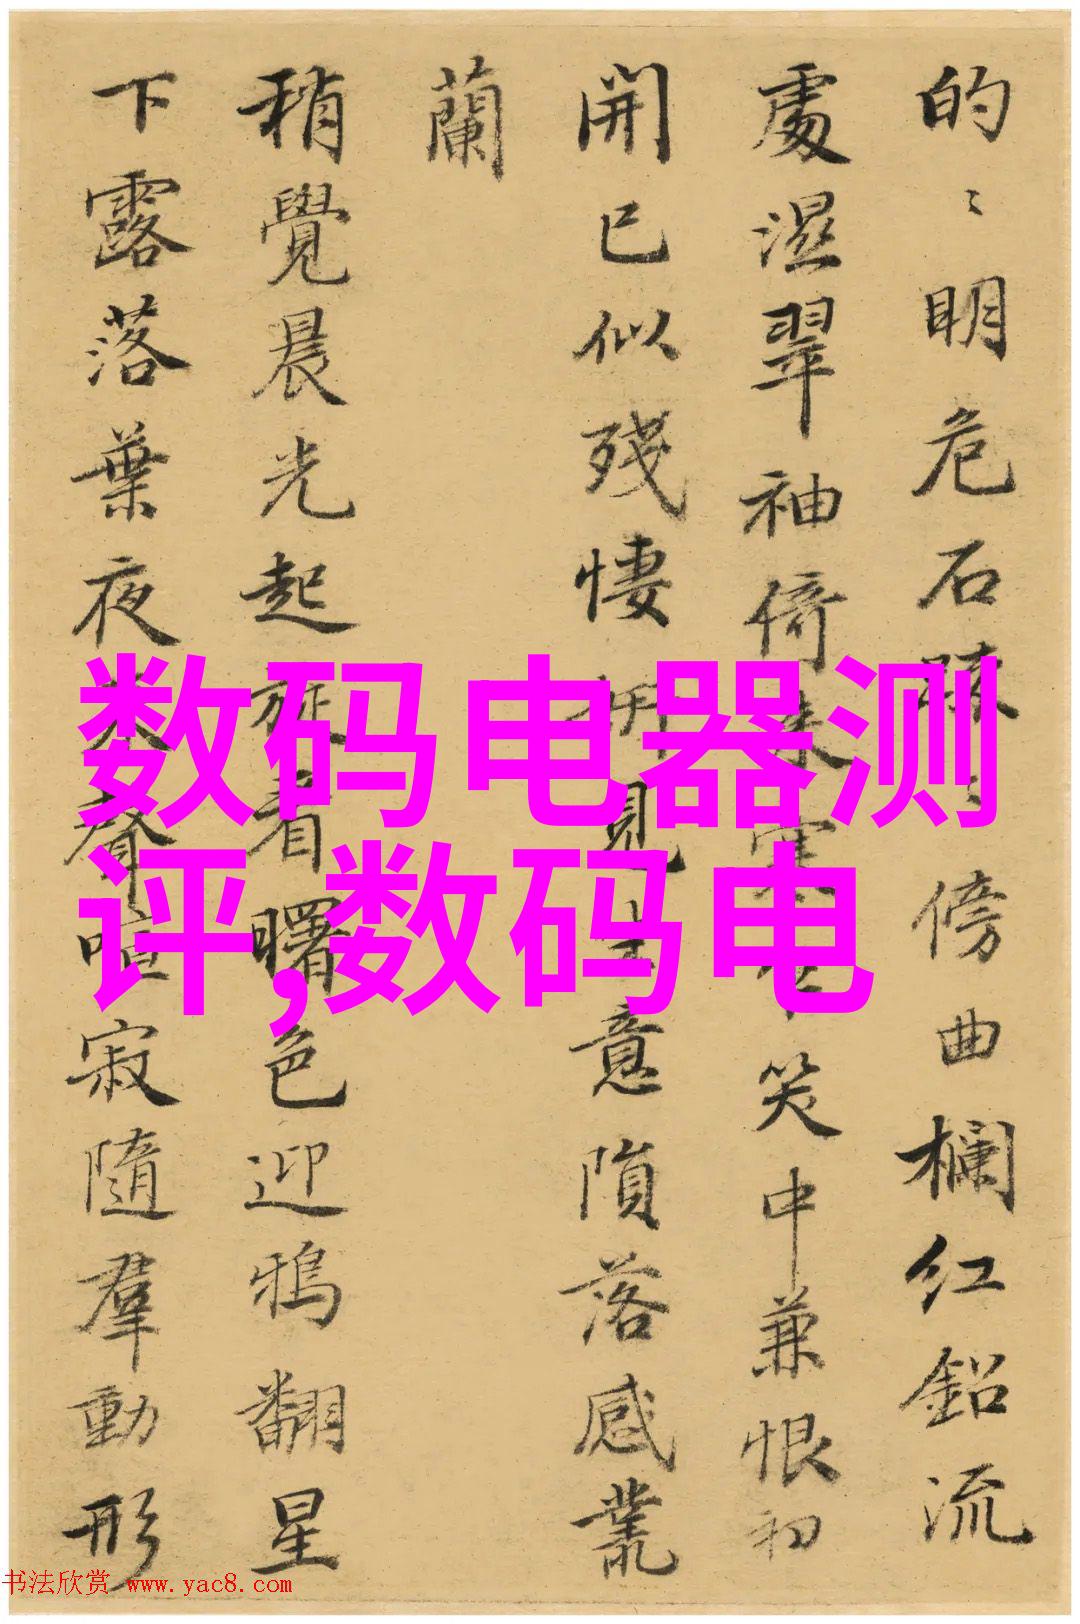 的〻明危石疎〻傍曲欄红鈆流
處濕翠袖倚来寒笑中兼恨初
開已似残悽見生意隕落感叢
蘭
稍覺晨光起看曙色迎鴉翻星
下露落葉夜聲喧寂隨羣動形
数码电器测
评,数码电
书法欣赏 www.yac8.com